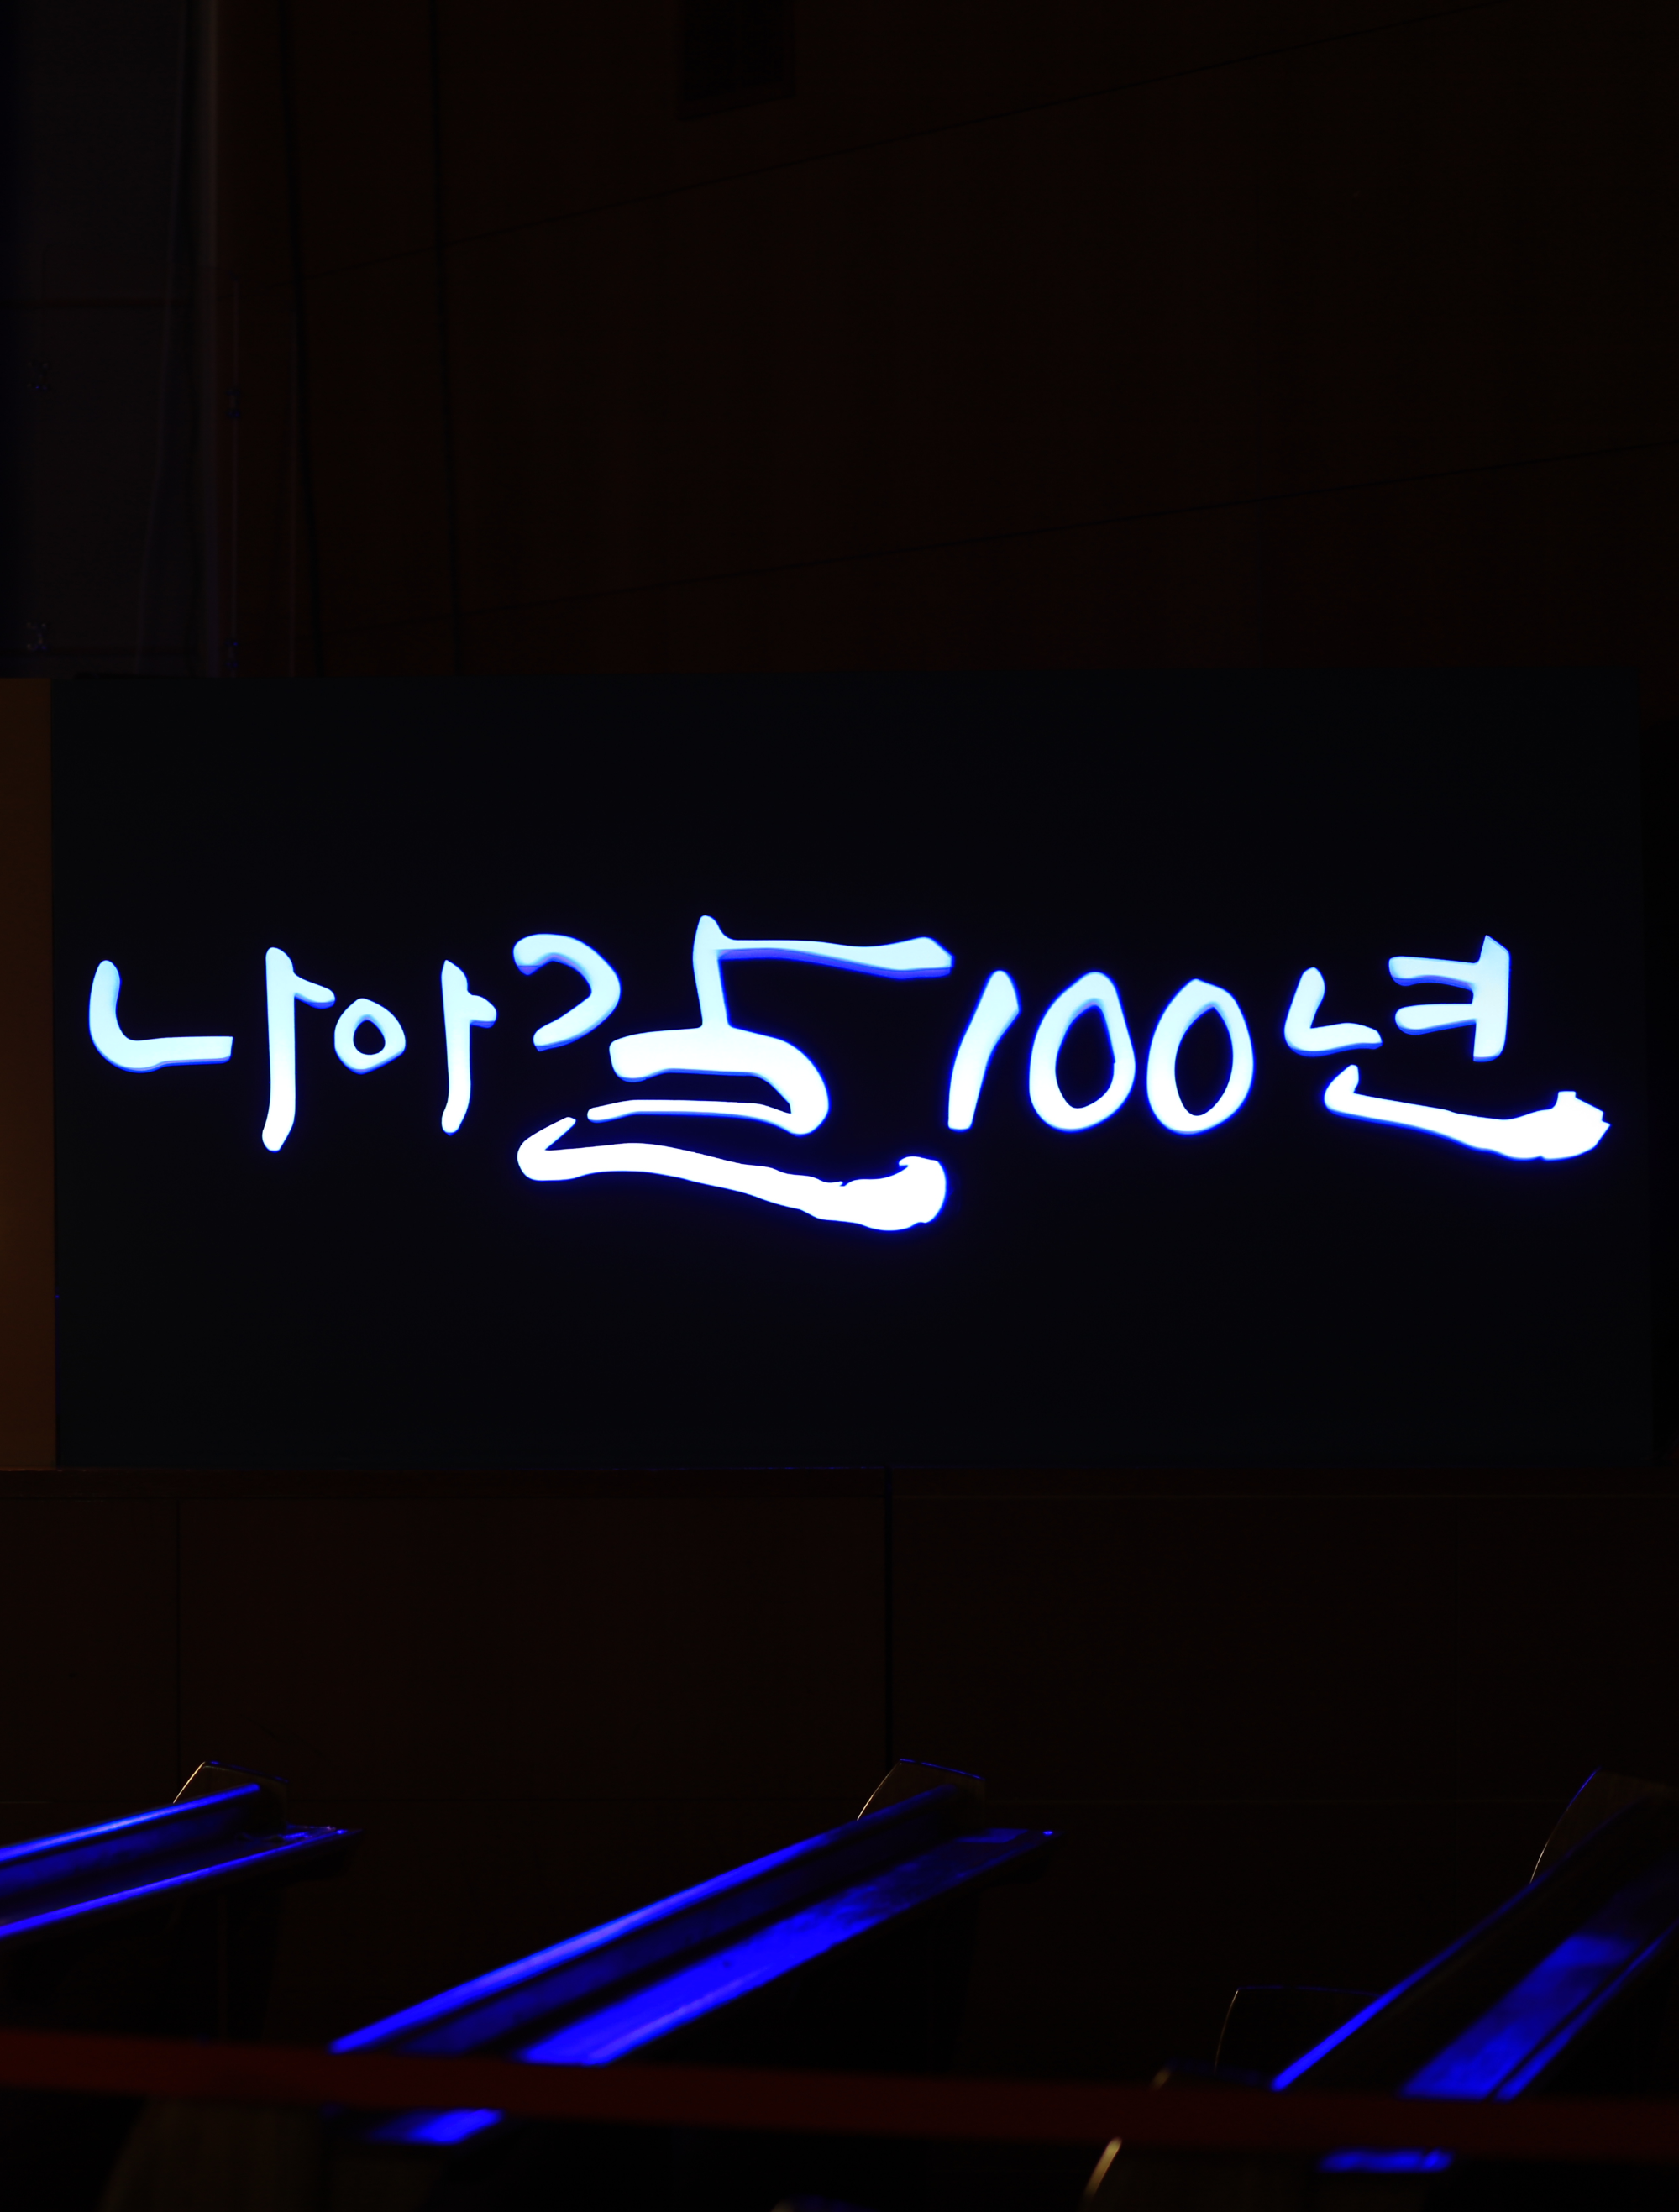 나아갈 100년